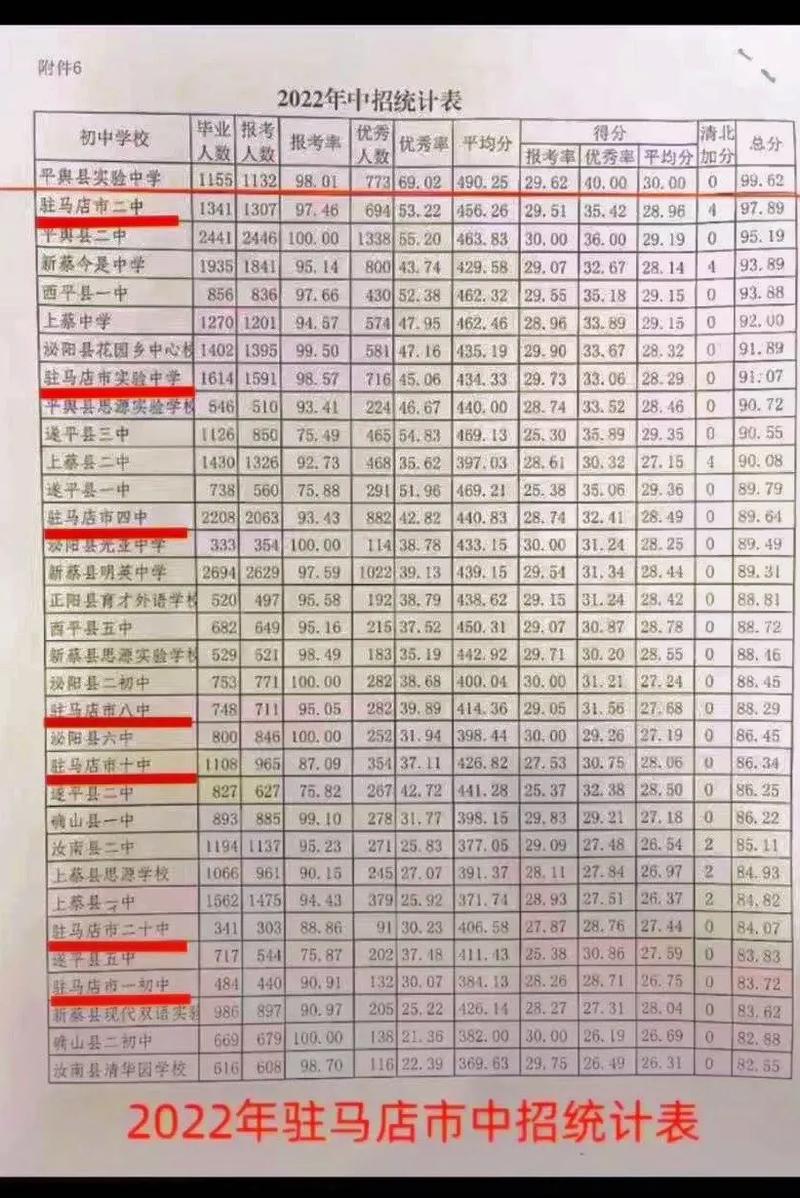 附件6
2022年中招统计表
初中学校 毕业人数 报考人数 报考率 优秀人数 优秀率 平均分 得分 报考率 优秀率 平均分 清北加分 总分
平舆县实验中学 1155 1132 98.01 773 69.02 490.25 29.62 40.00 30.00 0 99.62
驻马店市二中 1341 1307 97.46 694 53.22 456.26 29.51 35.42 28.96 4 97.89
平舆县二中 2441 2446 100.00 1338 55.20 463.83 30.00 36.00 29.19 0 95.19
新蔡今是中学 1935 1841 95.14 800 43.74 429.58 29.07 32.67 28.14 4 93.89
西平县一中 856 836 97.66 430 52.38 462.32 29.55 35.18 29.15 0 93.88
上蔡中学 1270 1201 94.57 574 47.95 462.46 28.96 33.89 29.15 0 92.00
泌阳县花园乡中心校 1402 1395 99.50 581 47.16 435.19 29.90 33.67 28.32 0 91.89
驻马店市实验中学 1614 1591 98.57 716 45.06 434.33 29.73 33.06 28.29 0 91.07
平舆县思源实验学校 546 510 93.41 224 46.67 440.00 28.74 33.52 28.46 0 90.72
遂平县三中 1126 850 75.49 465 54.83 469.13 25.30 35.89 29.35 0 90.55
上蔡县二中 1430 1326 92.73 468 35.62 397.03 28.61 30.32 27.15 4 90.08
遂平县一中 738 560 75.88 291 51.96 469.21 25.38 35.06 29.36 0 89.79
驻马店市四中 2208 2063 93.43 882 42.82 440.83 28.74 32.41 28.49 0 89.64
泌阳县光亚中学 333 354 100.00 114 38.78 433.15 30.00 31.24 28.25 0 89.49
新蔡县明英中学 2694 2629 97.59 1022 39.13 439.15 29.54 31.34 28.44 0 89.31
正阳县育才外语学校 520 497 95.58 192 38.79 438.62 29.15 31.24 28.42 0 88.81
西平县五中 682 649 95.16 215 37.52 450.31 29.07 30.87 28.78 0 88.72
新蔡县思源实验学校 529 521 98.49 183 35.19 442.92 29.71 30.20 28.55 0 88.46
泌阳县二初中 753 771 100.00 282 38.68 400.04 30.00 31.21 27.24 0 88.45
驻马店市八中 748 711 95.05 282 39.89 414.36 29.05 31.56 27.68 0 88.29
泌阳县六中 800 846 100.00 252 31.94 398.44 30.00 29.26 27.19 0 86.45
驻马店市十中 1108 965 87.09 354 37.11 426.82 27.53 30.75 28.06 0 86.34
遂平县二中 827 627 75.82 267 42.72 441.28 25.37 32.38 28.50 0 86.25
确山县一中 893 885 99.10 278 31.77 398.15 29.83 29.21 27.18 0 86.22
汝南县二中 1194 1137 95.23 271 25.83 377.05 29.09 27.48 26.54 2 85.11
上蔡县思源学校 1066 961 90.15 245 27.07 391.37 28.11 27.84 26.97 2 84.93
上蔡县一中 1562 1475 94.43 379 25.92 371.74 28.93 27.51 26.37 2 84.82
驻马店市二十中 341 303 88.86 91 30.23 406.58 27.87 28.76 27.44 0 84.07
遂平县五中 717 544 75.87 202 37.48 411.43 25.38 30.86 27.59 0 83.83
驻马店市一初中 484 440 90.91 132 30.07 384.13 28.26 28.71 26.75 0 83.72
新蔡县现代双语实验 986 897 90.97 205 25.22 426.14 28.27 27.31 28.04 0 83.62
确山县二初中 669 679 100.00 138 21.36 382.00 30.00 26.19 26.69 0 82.88
汝南县清华园学校 616 608 98.70 116 22.39 369.63 29.75 26.49 26.31 0 82.55
2022年驻马店市中招统计表